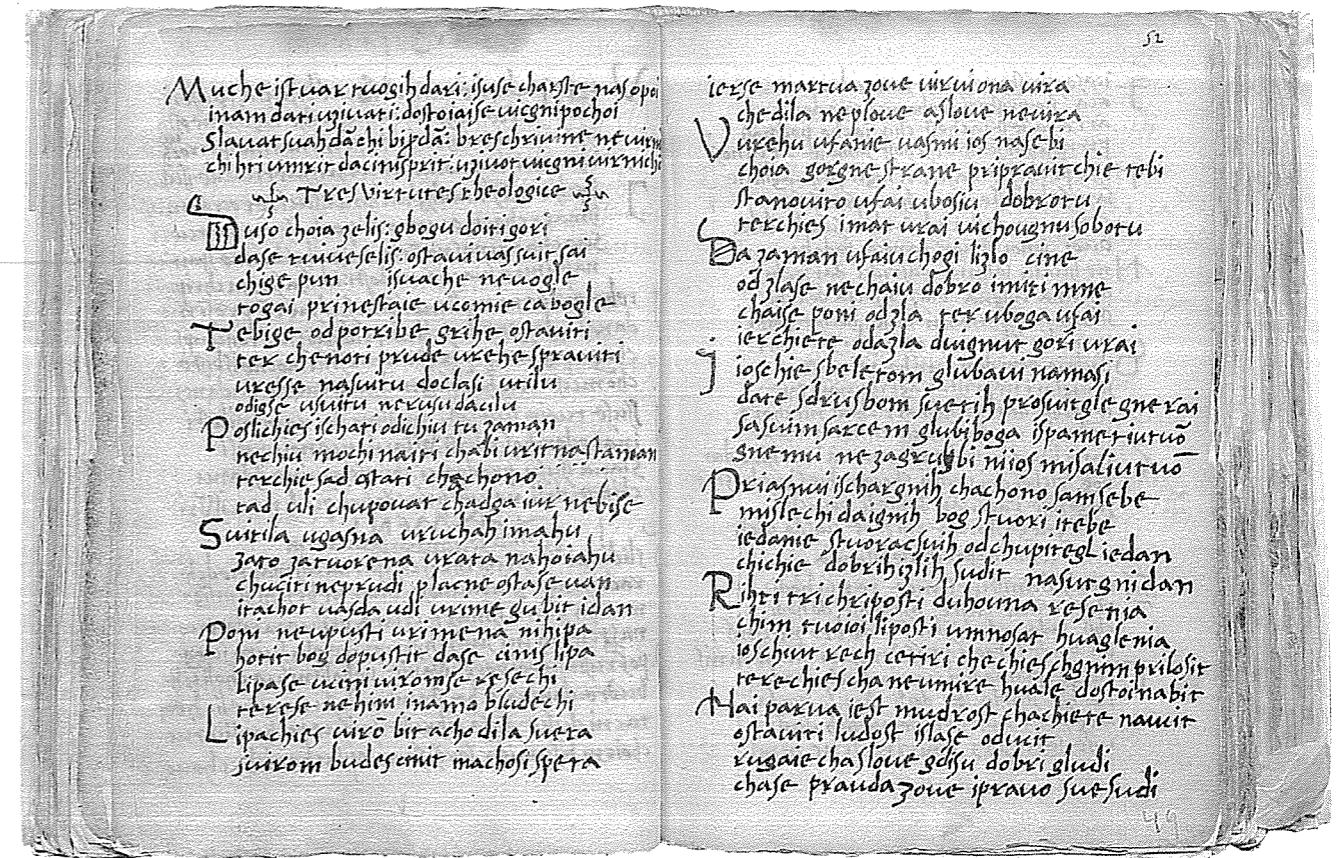 Muche istvar tvogih dari: isuse charste nas opoi
inam dari vzivati: dostoiaise vicgni pochoi
Slava tsvah dāchi bip dā: bres chrivine nevirni
chi hti vmrit dacinis prit: vzivot vicgni virnichi
Tres virtutes theologice
Duso choia zelis: gbogu doiti gori
dase tvive selis: ostavi vas svit sai
chige pun isvache nevogle
togai prinestaie vcomie ca bogle
Tebige od potribe grihe ostaviti
ter chenoti prude vrehe spraviti
vresse nasvitu doclasi vtilu
odigse vsvitu nerusu dacilu
Poslichies ischati odichiu tu zaman
nechiu mochi naiti chabi vrit nastaman
terchie sad ostati chgchono
tad vli chupovat chadga iur nebise
Svitila vgasna vruchah imahu
zato zatvorena vrata nahoiahu
chuciti neprudi placne ostase van
itachot vasda udi vrime gubit idan
Poni nevpusti vrimena nihipa
hotit bog dopustit dase cinis lipa
lipase vcini virom se resechi
terese nehini inamo bludechi
Lipachies virō bit acho dila svera
jvirom budes cinit machosi spera
52
ierse martva zove virvi ona vira
che dila neplove aslove nevira
Vvrehu vfanie vasmi ios nasebi
choia gorgne strane pripravit chie tebi
stanovito vfai vbosiu dobrotu
terchies imat vrai vichovgnu sobotu
Da zaman vfaiuchogi lizbo cine
od zlase nechaiu dobro imiti mne
chaise poni odzla ter vboga vfai
ierchiete odazla dvignut gori vrai
I ioschie sbeletom glubavi namasi
date sdrusbom svetih prosvitgle gne rai
sasvim sarcem glubi boga ispametiu tvō
gnemu ne zagrubi nijos misaliu tvō
Priasnvi ischargnih chachono sam sebe
mislechi daignih bog stvori i tebe
iedanie stvorac svih odchupitegl iedan
chichie dobrih izlih sudit nasvtgni dan
Rihti tri chriposti duhovna resenia
chim tvoioi liposti vmnosat hvaglenia
ioschiut rech cetiri chechies chgnim prilosit
terechies cha nevmire hvale dostoina bit
Nai parva iest mudrost chachiete navcit
ostaviti ludost islase odvcit
rugaie cha slove gdisu dobri gludi
chase pravda zove ipravo sve sudi
49